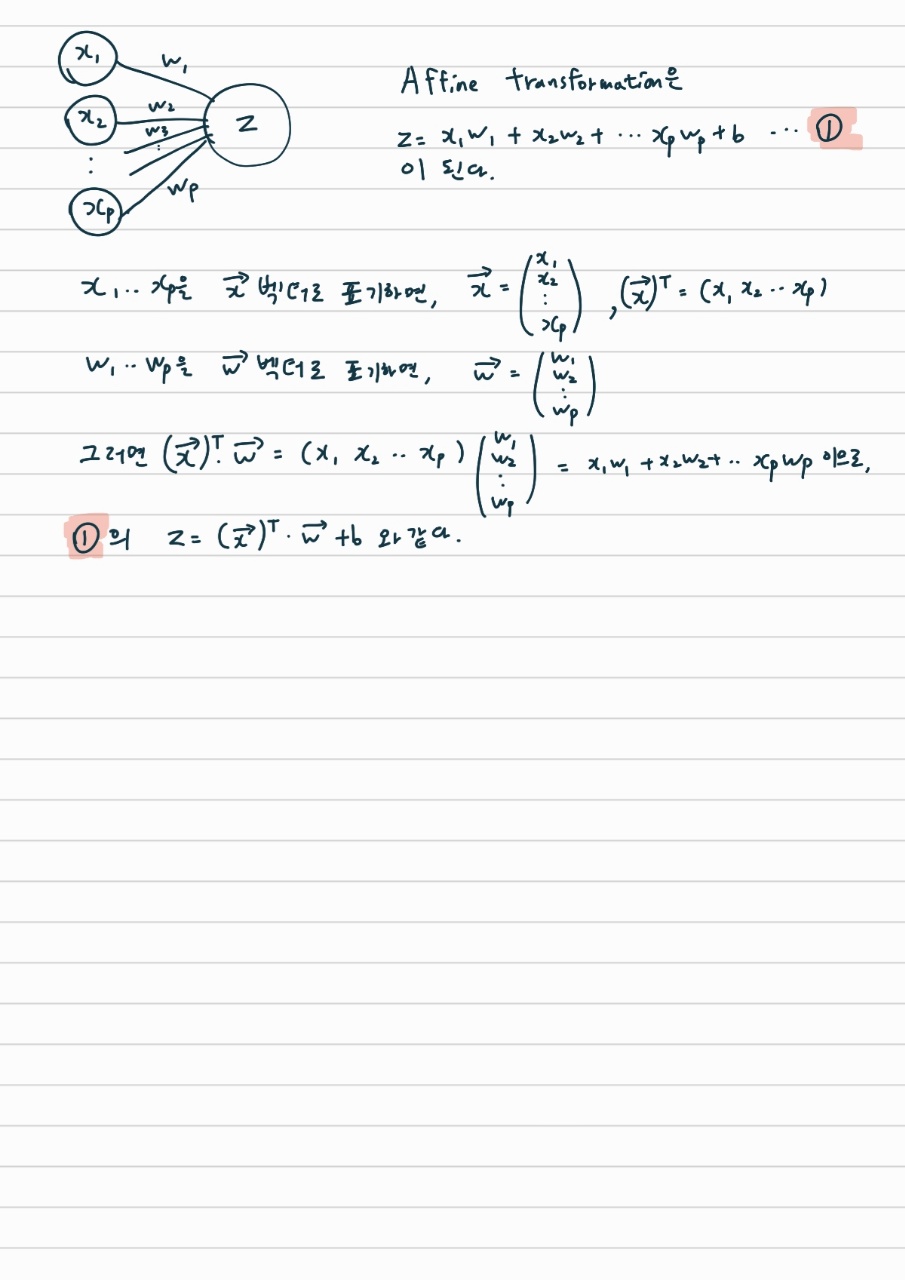 x₁ w₁
x₂ w₂ z
w₃
⋮ ⋮
xₚ wₚ
Affine transformation은
z = x₁w₁ + x₂w₂ + ⋯ xₚwₚ + b ⋯ ①
이 된다.
x₁‥xₚ을 x⃗ 벡터로 표기하면, x⃗ = (x₁ x₂ ⋮ xₚ) , (x⃗)ᵀ = (x₁ x₂ ‥ xₚ)
w₁‥wₚ을 w⃗ 벡터로 표기하면, w⃗ = (w₁ w₂ ⋮ wₚ)
그러면 (x⃗)ᵀ· w⃗ = (x₁ x₂ ‥ xₚ) (w₁ w₂ ⋮ wₚ) = x₁w₁ + x₂w₂ + ‥ xₚwₚ 이므로,
①의 z = (x⃗)ᵀ · w⃗ + b 와 같다.